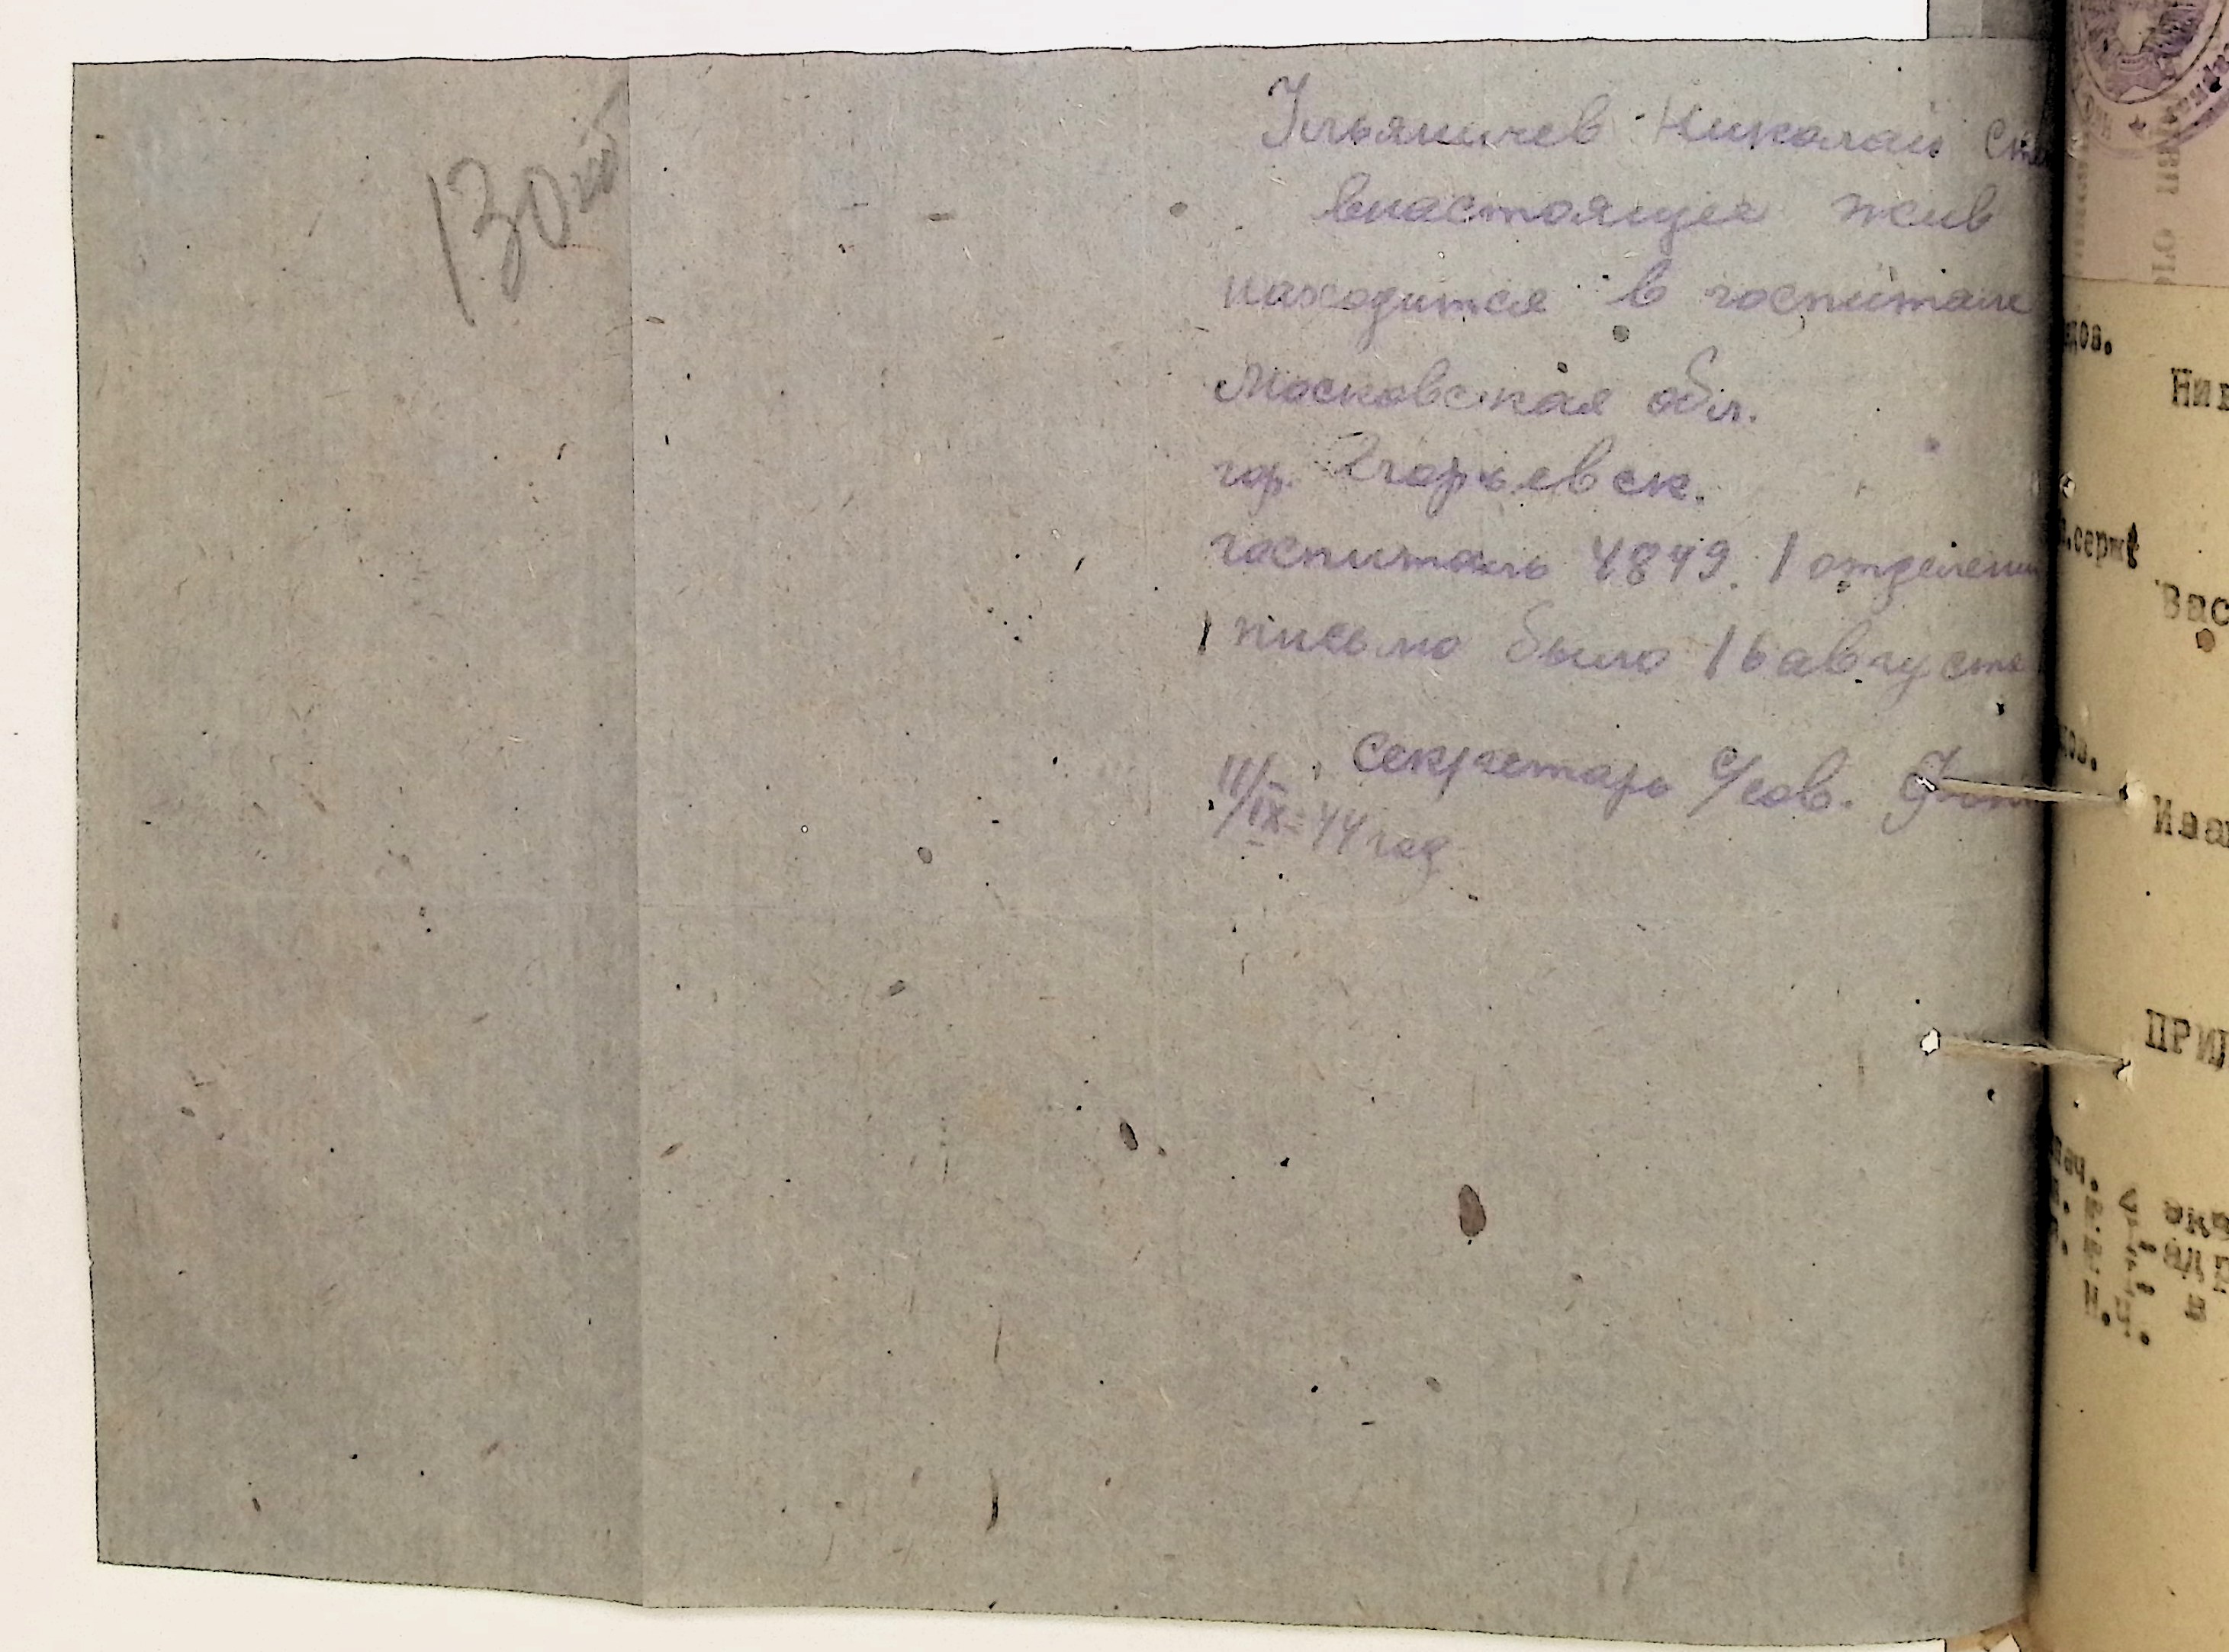 130
Николай
внастоящее жив
находится в госпитале
Московская обл.
гор. Егорьевск.
госпиталь 4849. 1 отделени
письмо было 16 августа
Секретарь с/сов.
11/IX-44 год
дов.
Ник
.серж
Вас
ков.
Ива
ПРИ
Н.Ц.